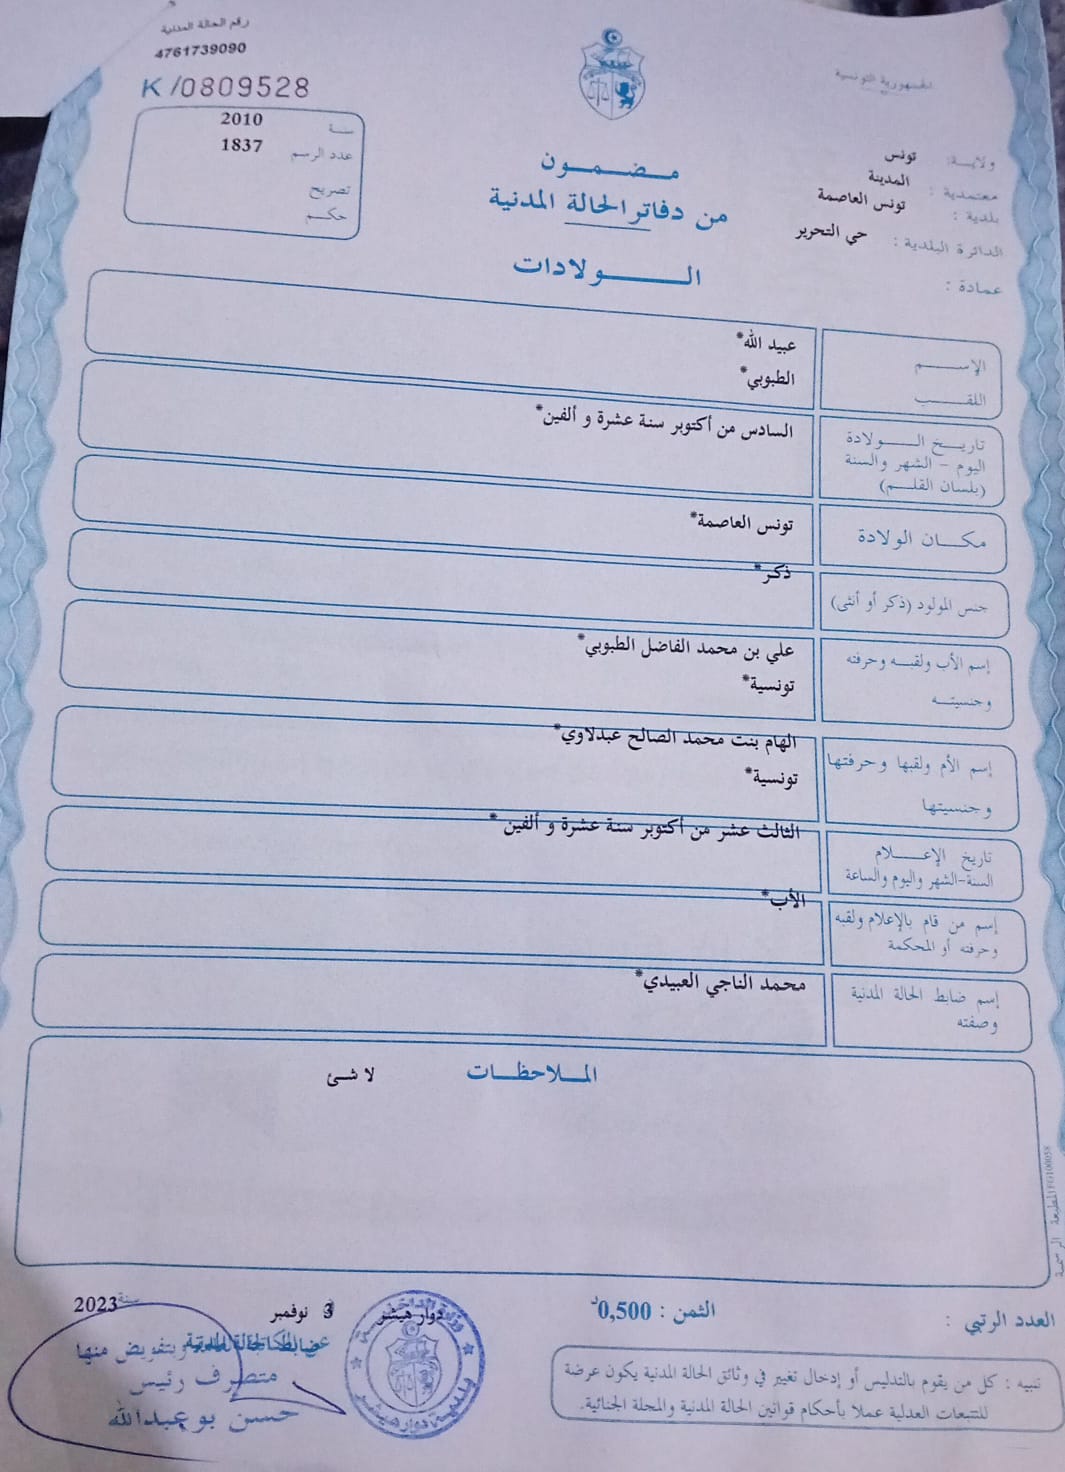 رقم الحالة المدنية
4761739090
K/0809528
سنة 2010
عدد الرسم 1837
تصريح
حكم
الجمهورية التونسية
ولاية: تونس
معتمدية: المدينة
بلدية: تونس العاصمة
الدائرة البلدية: حي التحرير
عمادة:
مضمون
من دفاتر الحالة المدنية
الولادات
الإسم عبيد الله*
اللقب الطبوبي*
تاريخ الولادة السادس من أكتوبر سنة عشرة و ألفين*
اليوم - الشهر والسنة
(بلسان القلم)
مكان الولادة تونس العاصمة*
جنس المولود (ذكر أو أنثى) ذكر*
إسم الأب ولقبه وحرفته علي بن محمد الفاضل الطبوبي*
وجنسيته تونسية*
إسم الأم ولقبها وحرفتها الهام بنت محمد الصالح عبدلاوي*
وجنسيتها تونسية*
تاريخ الإعلام الثالث عشر من أكتوبر سنة عشرة و ألفين *
السنة-الشهر واليوم والساعة
إسم من قام بالإعلام ولقبه الأب*
وحرفته أو المحكمة
إسم ضابط الحالة المدنية محمد الناجي العبيدي*
وصفته
الملاحظات
لا شئ
المطبعة الرسمية FG100058
العدد الرتبي :
الثمن : 0,500د
دوار هيشر 3 نوفمبر سنة 2023
ضابط الحالة المدنية
وبتفويض منها
متصرف رئيس
حسن بو عبدالله
وزارة الداخلية
بلدية دوار هيشر
تنبيه : كل من يقوم بالتدليس أو إدخال تغيير في وثائق الحالة المدنية يكون عرضة
للتتبعات العدلية عملا بأحكام قوانين الحالة المدنية والمجلة الجنائية.